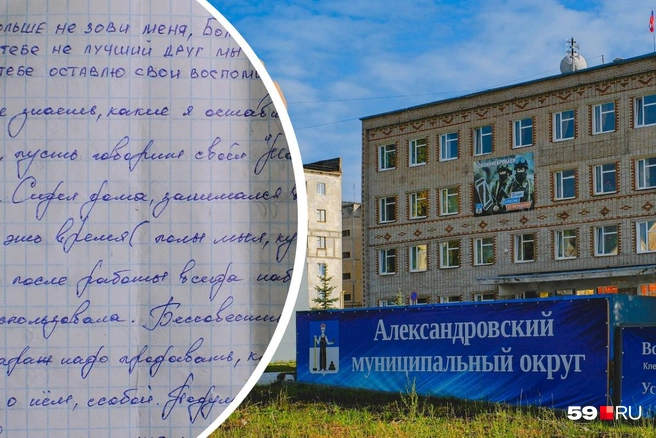 ОЛЬШЕ НЕ ЗОВИ МЕНЯ, БОЛ
ТЕБЕ НЕ ЛУЧШИЙ ДРУГ МЫ
ТЕБЕ ОСТАВЛЮ СВОИ ВОСПОМ
е знаешь, какие я остави
, пусть говорит своей
. Сидел дома, занимался
это время( полы мыл, ку
после работы всегда
спользовала. Бессовестн
гараж надо продавать, к
о нём, особой. Подум
Александровский
муниципальный округ
Во
Кле
Ус
59.RU